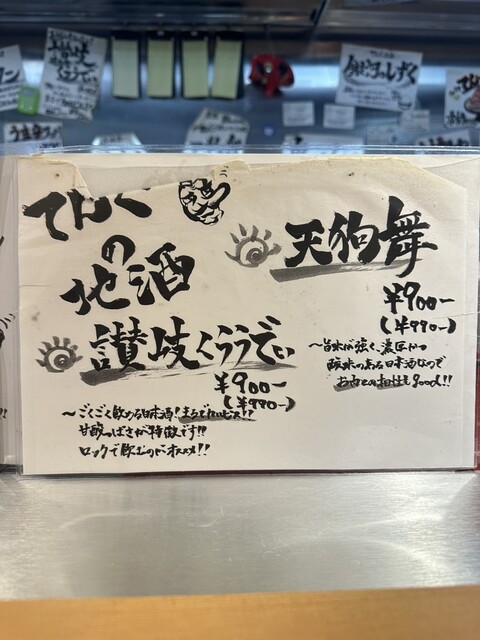 てんぐ
の
地酒
讃岐くらうでぃ
¥900-
(¥990-)
〜ごくごく飲める日本酒!まるでカルピス!!
甘酸っぱさが特徴です!!
ロックで飲むのがオススメ!!
天狗舞
¥900-
(¥990-)
〜旨味が強く、濃厚かつ
酸味のある日本酒なので
お肉との相性もgood!!